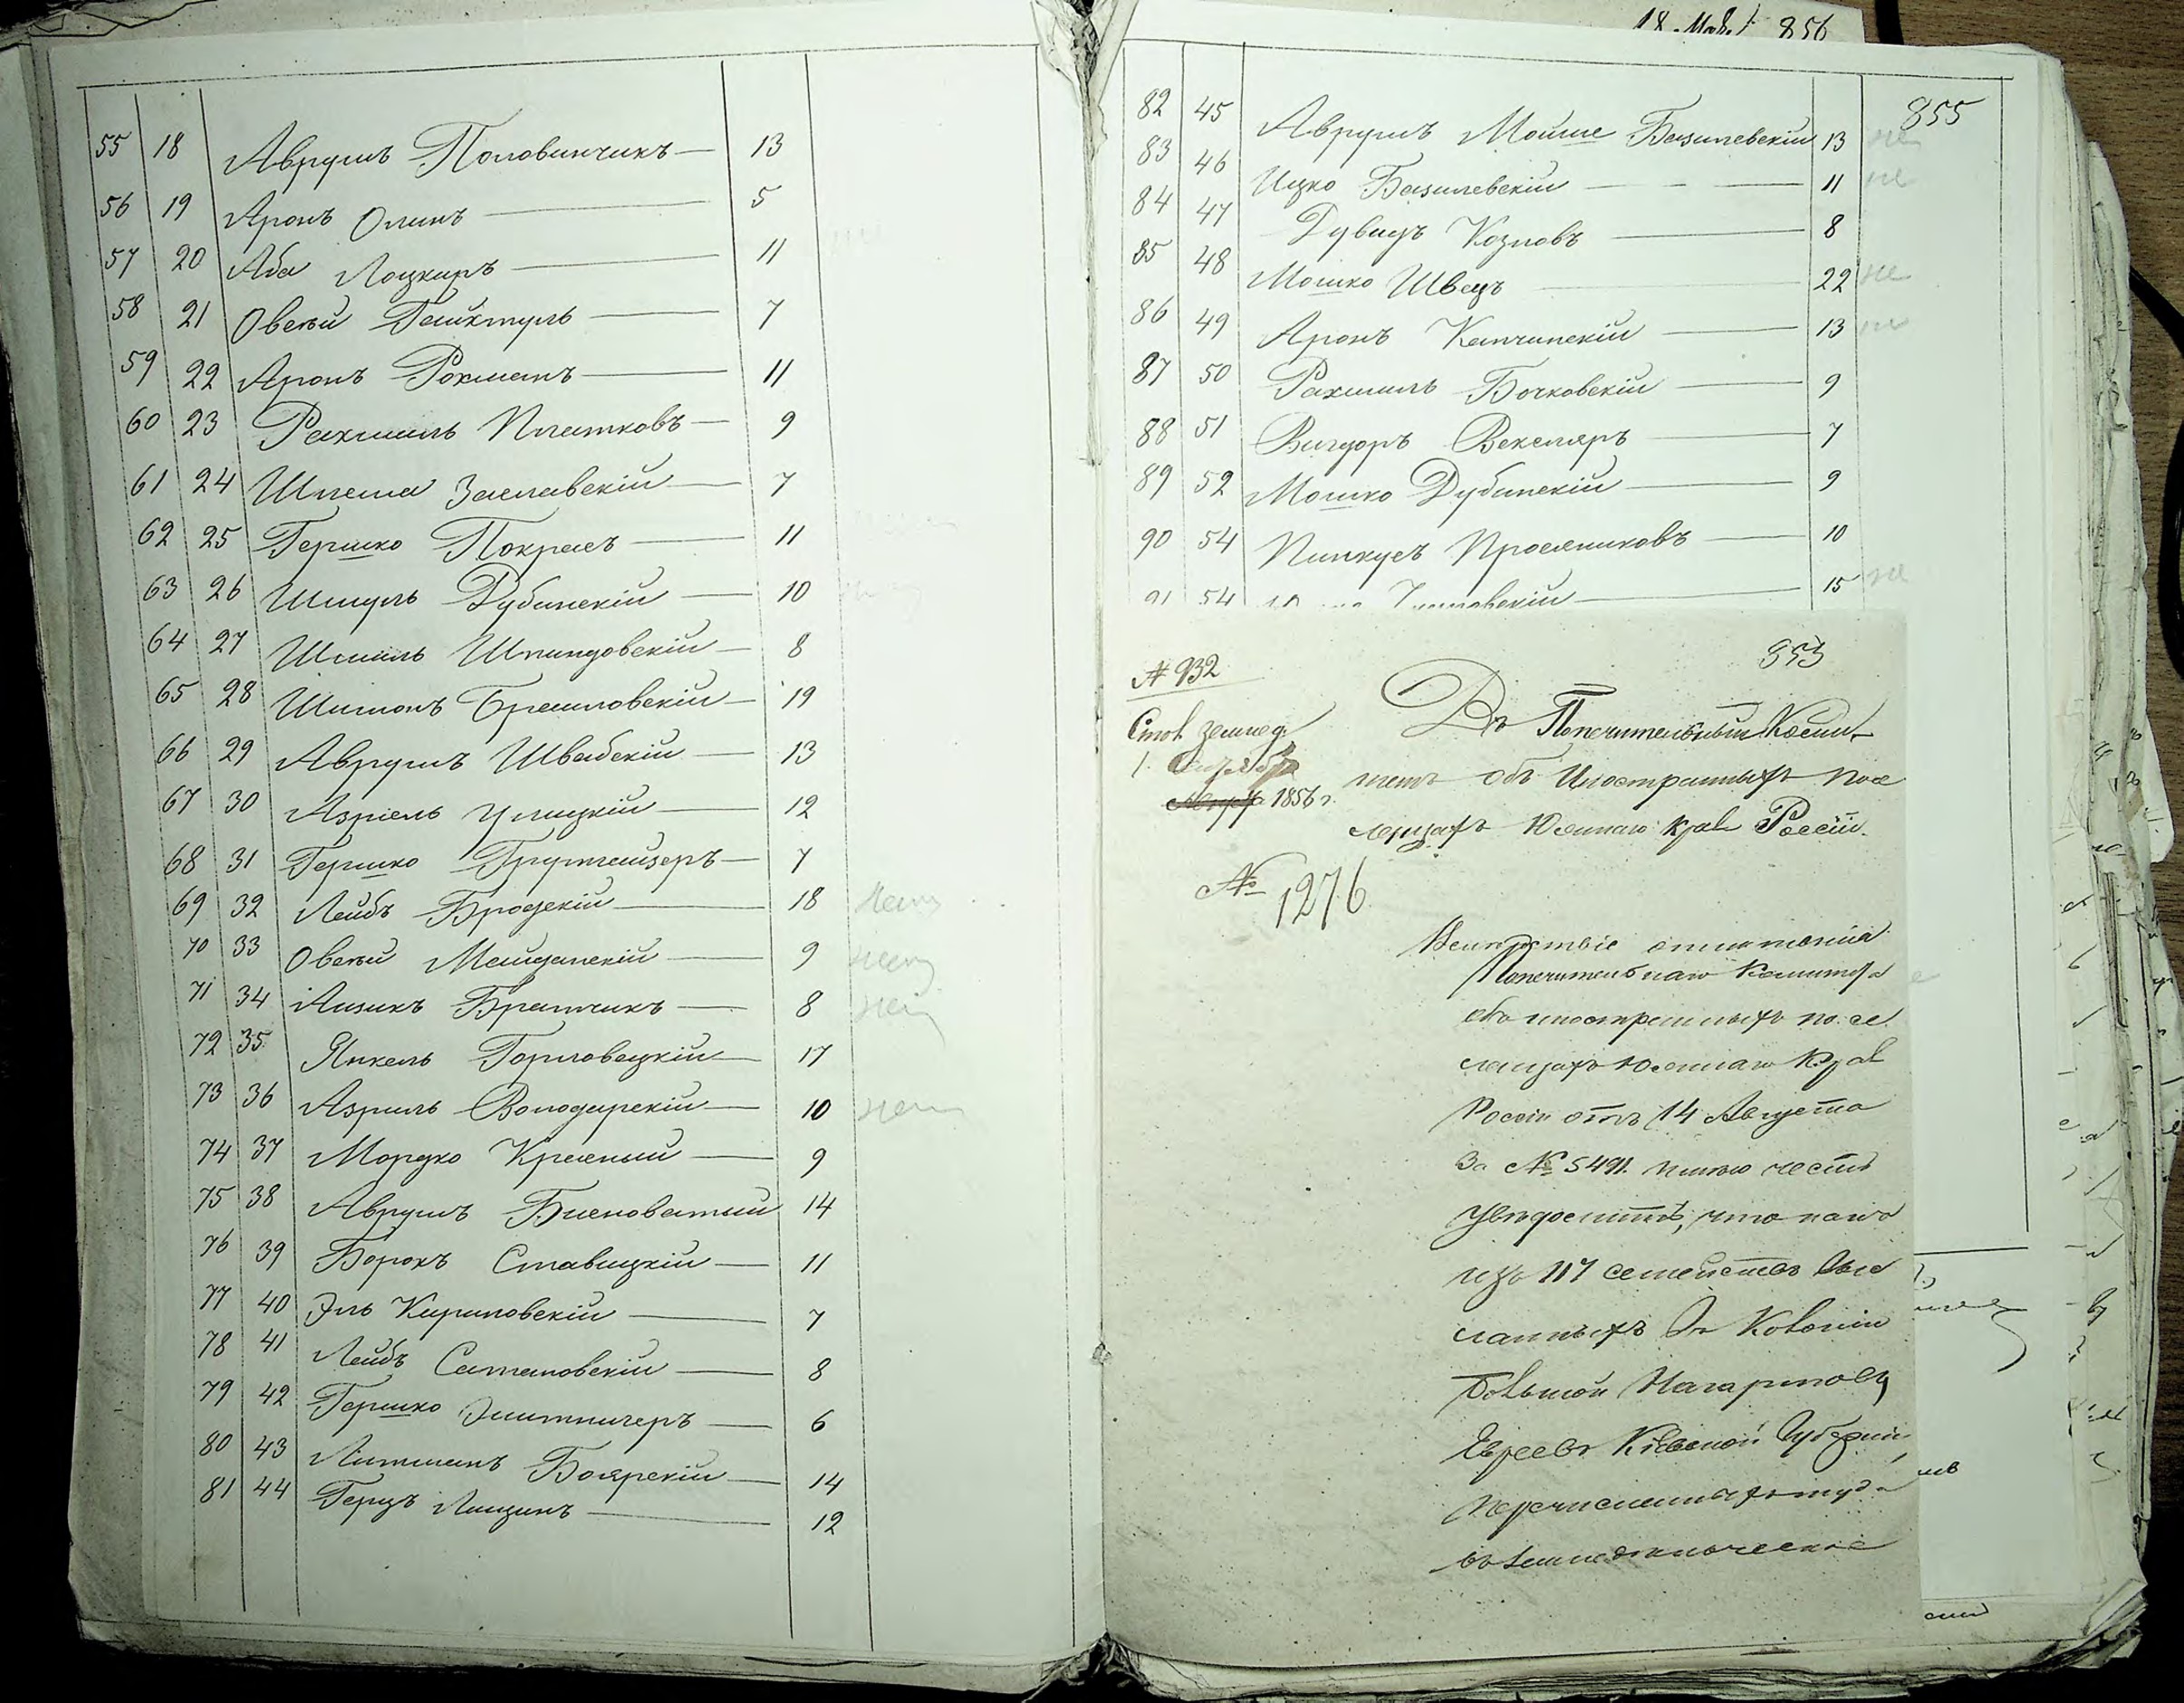 55 18 Аврумъ Половинчикъ — 13
56 19 Аронъ Олинъ — 5
57 20 Аба Лоцкиръ — 11
58 21 Овсѣй — 7
59 22 Аронъ Рохманъ — 11
60 23 Рахмиль Платковъ — 9
61 24 Шлема Заславскій — 7
62 25 Гершко Покрасъ — 11
63 26 Шмуль Дубинскій — 10
64 27 Шмиль — 8
65 28 Шимонъ — 19
66 29 Аврумъ Швабскій — 13
67 30 Азріель Улицкій — 12
68 31 Гершко — 7
69 32 Лейбъ Бродскій — 18
70 33 Овсѣй Мейданскій — 9
71 34 Аизикъ Братчикъ — 8
72 35 Янкель Горловецкій — 17
73 36 Азриль Володарскій — 10
74 37 Мордко Красный — 9
75 38 Аврумъ Бисноватый 14
76 39 Борохъ Ставицкій — 11
77 40 Эль Кириловскій — 7
78 41 Лейбъ Сатановскій — 8
79 42 Гершко — 6
80 43 Литманъ Боярскій — 14
81 44 Герцъ — 12
856
855
82 45 Аврумъ Мошие Базилевскій 13 не
83 46 Ицко Базилевскій — 11 не
84 47 Дувидъ Козловъ — 8
85 48 Мошко Швецъ — 22 не
86 49 Аронъ Капчинскій — 13 не
87 50 Рахмиль Бочковскій — 9
88 51 Вигдоръ Векслеръ — 7
89 52 Мошко Дубинскій — 9
90 54 Пинкусъ Просяниковъ — 10
91 54 — 15 не
853
№ 932
Въ Попечительный Коми-
тетъ объ Иностранныхъ посе
1856 г.
ленцахъ Южнаго края Россіи.
№ 1276
Вслѣдствіе отношенія
Попечительнаго Комитета
объ иностранныхъ посе
ленцахъ Южнаго края
Россіи отъ 14 Августа
за № 5491. имѣю честь
увѣдомить, что
изъ 117 семействъ
въ Колонію
Большой Нагартовъ
Евреевъ Кіевской Губерніи
перечисленныхъ туда
въ земледѣльческіе